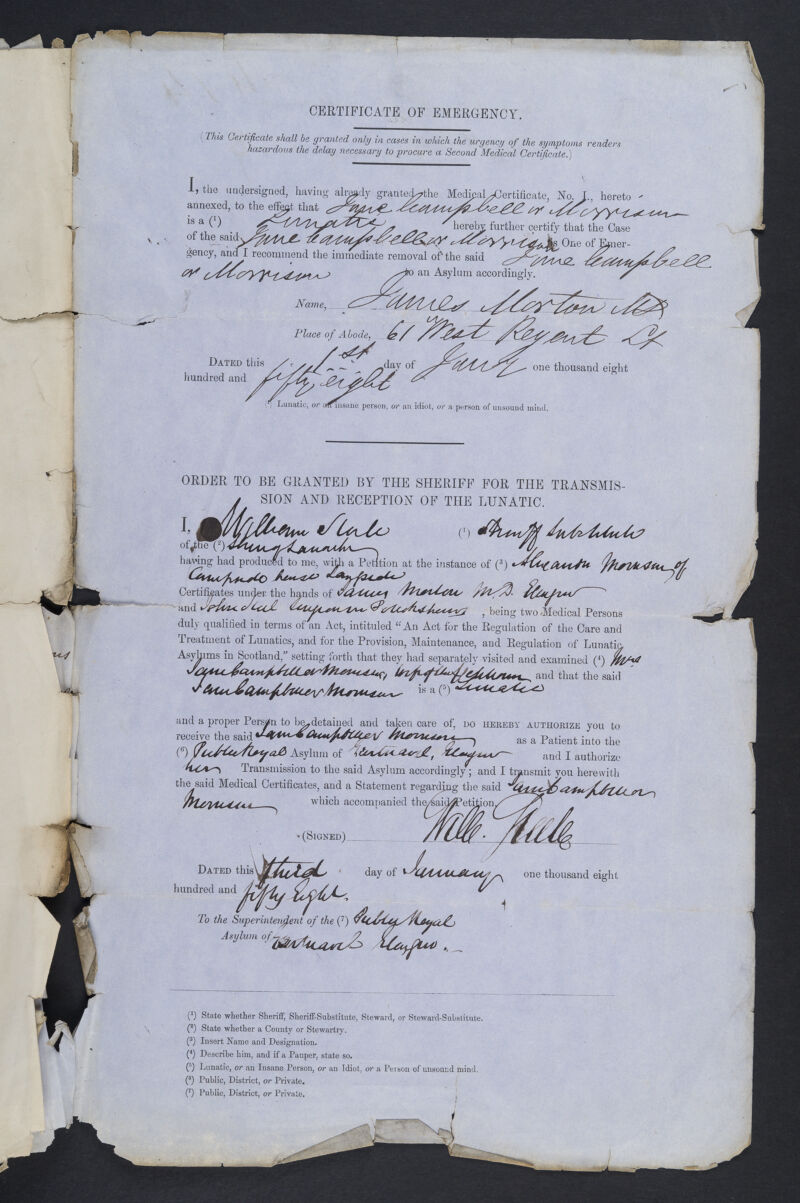 CERTIFICATE OF EMERGENCY.
(This Certificate shall be granted only in cases in which the urgency of the symptoms renders
hazardous the delay necessary to procure a Second Medical Certificate.)
I, the undersigned, having already granted the Medical Certificate, No. I., hereto
annexed, to the effect that Jane Campbell or Morrison
is a (¹) Lunatic hereby further certify that the Case
of the said Jane Campbell or Morrison is One of Emer-
gency, and I recommend the immediate removal of the said Jane Campbell
or Morrison to an Asylum accordingly.
Name, James Morton MD
Place of Abode, 61 West Regent St
DATED this 1st day of Jany one thousand eight
hundred and fifty eight
(¹) Lunatic, or an insane person, or an idiot, or a person of unsound mind.
ORDER TO BE GRANTED BY THE SHERIFF FOR THE TRANSMIS-
SION AND RECEPTION OF THE LUNATIC.
I, William Steele (¹) Sheriff Substitute
of the (²) Lanark
having had produced to me, with a Petition at the instance of (³) Alexander Morrison of
house Langside
Certificates under the hands of James Morton M.D. Glasgow
and John Neil Surgeon Pollokshaws, being two Medical Persons
duly qualified in terms of an Act, intituled "An Act for the Regulation of the Care and
Treatment of Lunatics, and for the Provision, Maintenance, and Regulation of Lunatic
Asylums in Scotland," setting forth that they had separately visited and examined (⁴) Mrs
Jane Campbell or Morrison, wife of the and that the said
Jane Campbell or Morrison is a (⁵) Lunatic
and a proper Person to be detained and taken care of, DO HEREBY AUTHORIZE you to
receive the said Jane Campbell or Morrison as a Patient into the
(⁶) Public Royal Asylum of Gartnavel, Glasgow and I authorize
her Transmission to the said Asylum accordingly; and I transmit you herewith
the said Medical Certificates, and a Statement regarding the said Jane Campbell or
Morrison which accompanied the said Petition.
(SIGNED) Will. Steele
DATED this third day of January one thousand eight
hundred and fifty Eight.
To the Superintendent of the (⁷) Public Royal
Asylum of Gartnavel Glasgow.
(¹) State whether Sheriff, Sheriff-Substitute, Steward, or Steward-Substitute.
(²) State whether a County or Stewartry.
(³) Insert Name and Designation.
(⁴) Describe him, and if a Pauper, state so.
(⁵) Lunatic, or an Insane Person, or an Idiot, or a Person of unsound mind.
(⁶) Public, District, or Private.
(⁷) Public, District, or Private.